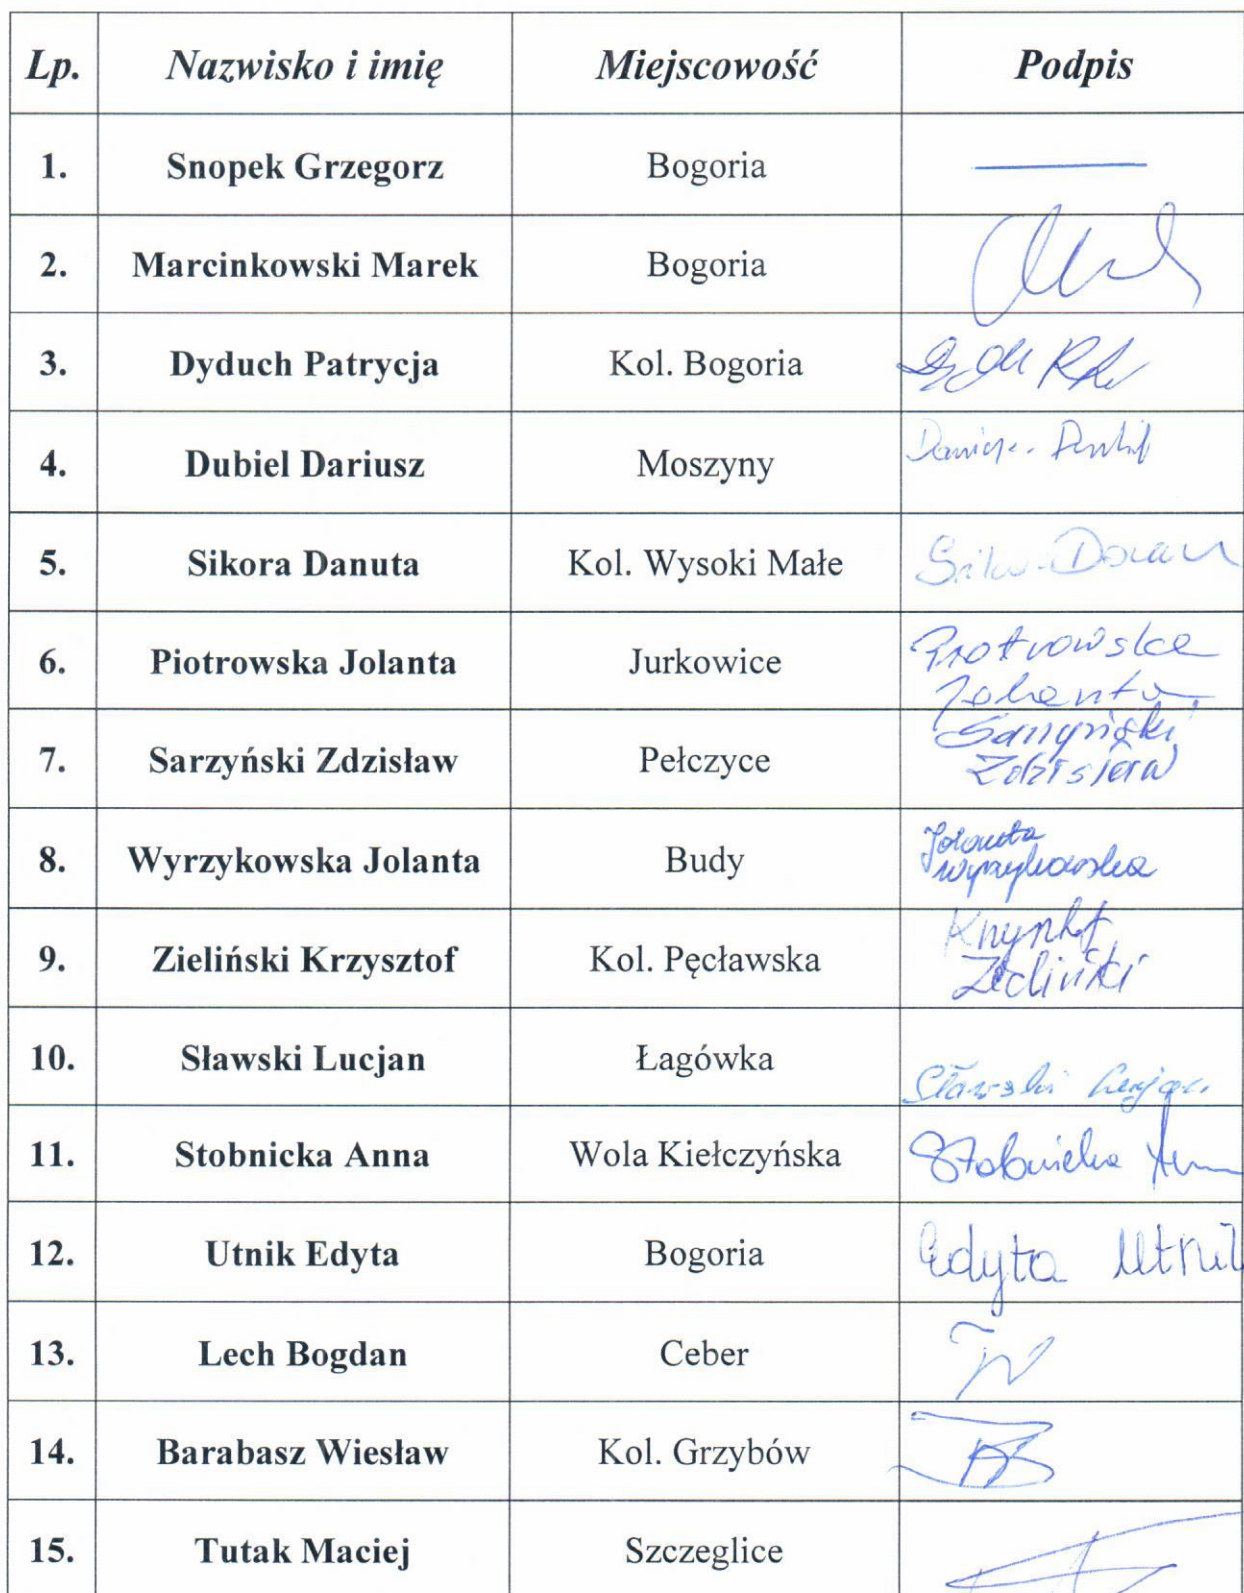 Lp. Nazwisko i imię Miejscowość Podpis
1. Snopek Grzegorz Bogoria
2. Marcinkowski Marek Bogoria
3. Dyduch Patrycja Kol. Bogoria
4. Dubiel Dariusz Moszyny
5. Sikora Danuta Kol. Wysoki Małe
6. Piotrowska Jolanta Jurkowice Piotrowska
Jolanta
7. Sarzyński Zdzisław Pełczyce Sarzyński
Zdzisław
8. Wyrzykowska Jolanta Budy Jolanta
Wyrzykowska
9. Zieliński Krzysztof Kol. Pęcławska Krzysztof
Zieliński
10. Sławski Lucjan Łagówka Sławski Lucjan
11. Stobnicka Anna Wola Kiełczyńska Stobnicka
12. Utnik Edyta Bogoria Edyta Utnik
13. Lech Bogdan Ceber
14. Barabasz Wiesław Kol. Grzybów
15. Tutak Maciej Szczeglice